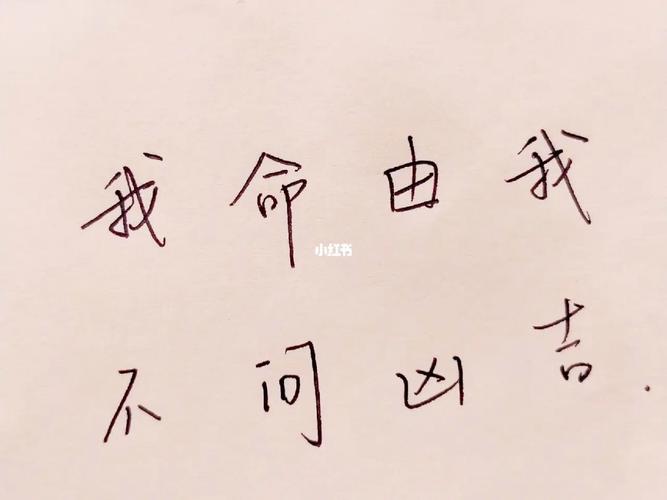 我命由我
小红书
不问凶吉.